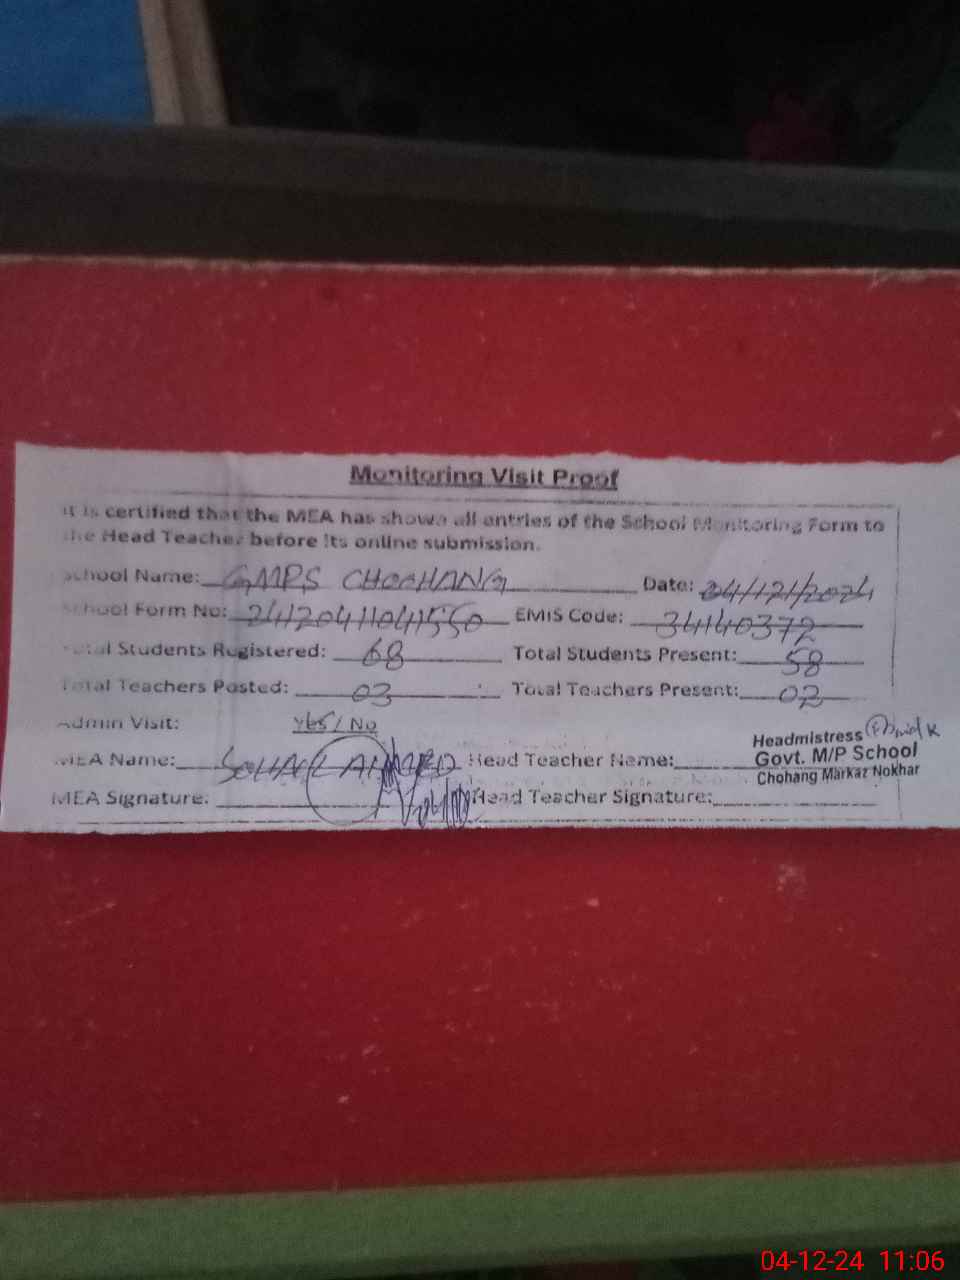 Monitoring Visit Proof
It is certified that the MEA has shown all entries of the School Monitoring Form to
the Head Teacher before its online submission.
School Name: GMPS CHOOHANG Date: 04/12/2024
School Form No: 24120411041550 EMIS Code: 34140372
Total Students Registered: 68 Total Students Present: 58
Total Teachers Posted: 03 Total Teachers Present: 02
Admin Visit: YES / No
MEA Name: SOHAIL AHMED Head Teacher Name:
Headmistress
Govt. M/P School
Chohang Markaz Nokhar
MEA Signature: Head Teacher Signature:
04-12-24 11:06